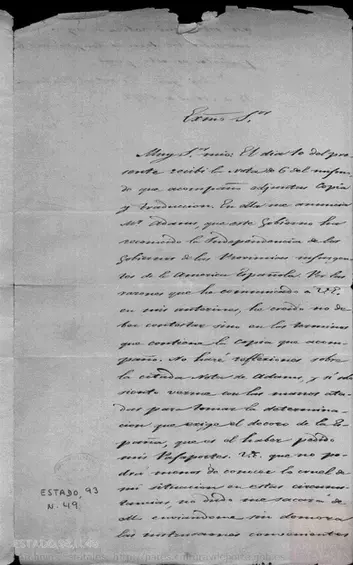 Exmo. S.or
Muy S.or mio: El dia 10 del pre-
sente recibí la nota de 6 del mismo
de que acompaño adjuntas copia
y traduccion. En ella me anuncia
Mr. Adams, que este Gobierno ha
reconocido la Independencia de los
Gobiernos de las Provincias insurgen-
tes de la America Española. Por las
razones que he comunicado a V.E.
en mis anteriores, he creido no de-
ber contestar sino en los terminos
que contiene la copia que acom-
paño. No haré reflexiones sobre
la citada Nota de Adams, y si de
siento verme con las manos ata-
das para tomar la determina-
cion que exige el decoro de la Es-
paña, que es el haber pedido
mis Pasaportes. V.E. que no po-
drá menos de conocer lo cruel de
mi situacion en estas circuns-
tancias, no dudo me sacará de
ella enviandome sin demora
las instrucciones
ESTADO, 93
N. 49